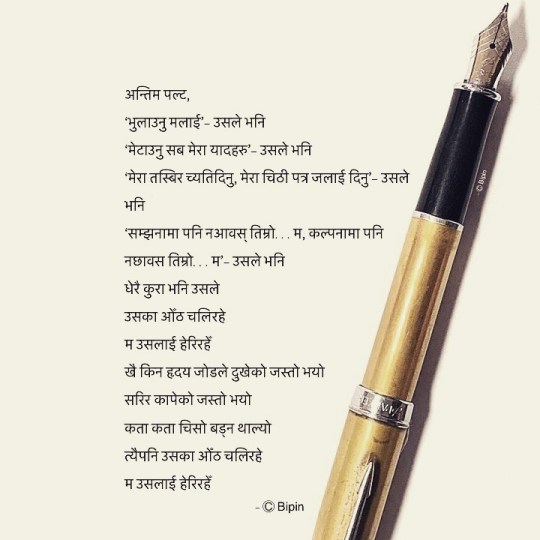 अन्तिम पल्ट,
'भुलाउनु मलाई'– उसले भनि
'मेटाउनु सब मेरा यादहरु'– उसले भनि
'मेरा तस्बिर च्यतिदिनु, मेरा चिठी पत्र जलाई दिनु'– उसले
भनि
'सम्झनामा पनि नआवस् तिम्रो. . . म, कल्पनामा पनि
नछावस तिम्रो. . . म'– उसले भनि
धेरै कुरा भनि उसले
उसका ओँठ चलिरहे
म उसलाई हेरिरहेँ
खै किन हृदय जोडले दुखेको जस्तो भयो
सरिर कापेको जस्तो भयो
कता कता चिसो बड्न थाल्यो
त्यैपनि उसका ओँठ चलिरहे
म उसलाई हेरिरहेँ
– © Bipin
- © Bipin